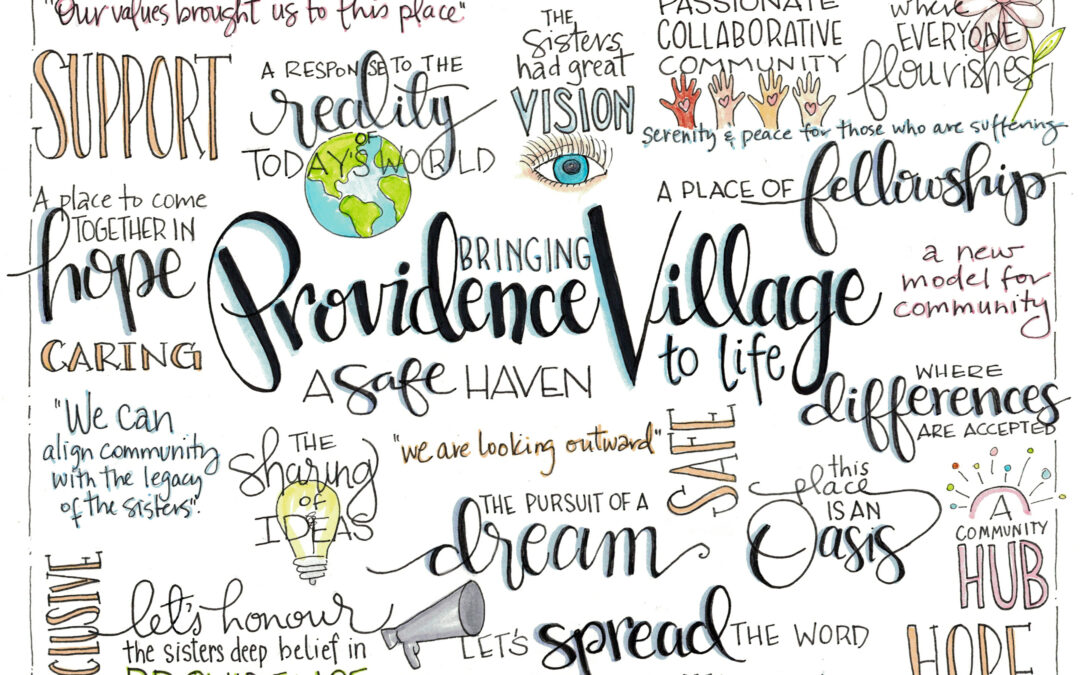 "Our values brought us to this place"
SUPPORT
A RESPONSE TO THE
reality
OF
TODAY'S WORLD
THE
Sisters
had great
VISION
PASSIONATE
COLLABORATIVE
COMMUNITY
where
EVERYONE
flourishes
serenity & peace for those who are suffering
A PLACE OF fellowship
A place to come
TOGETHER IN
hope
BRINGING
Providence Village
to life
a new
model for
community
CARING
A safe HAVEN
WHERE
differences
ARE ACCEPTED
"We Can
align community
with the legacy
of the sisters".
THE
sharing
of
IDEAS
"we are looking outward"
SAFE
THE PURSUIT OF A
dream
this
place
IS AN
Oasis
A
COMMUNITY
HUB
let's honour
the sisters deep belief in
LET'S spread THE WORD
HOPE